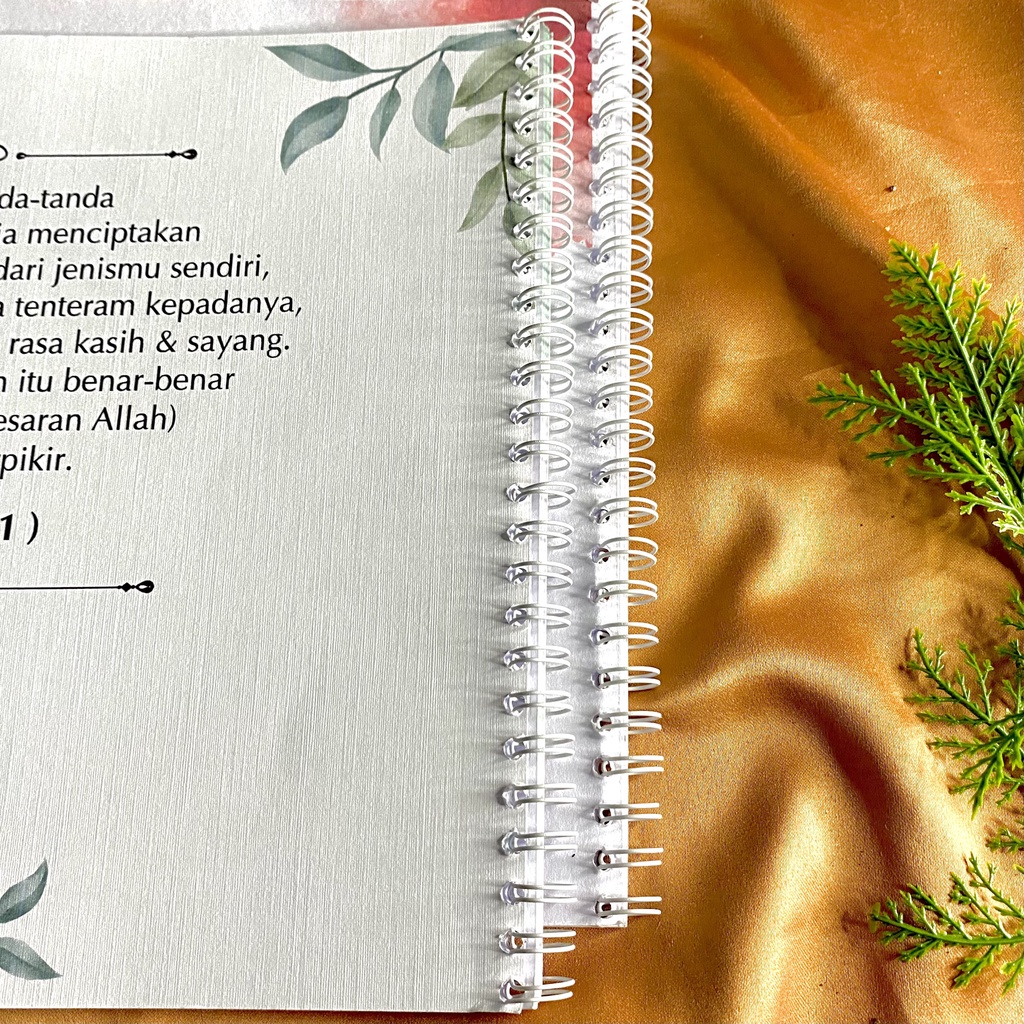 da-tanda
ia menciptakan
dari jenismu sendiri,
a tenteram kepadanya,
rasa kasih & sayang.
n itu benar-benar
esaran Allah)
rpikir.
1 )